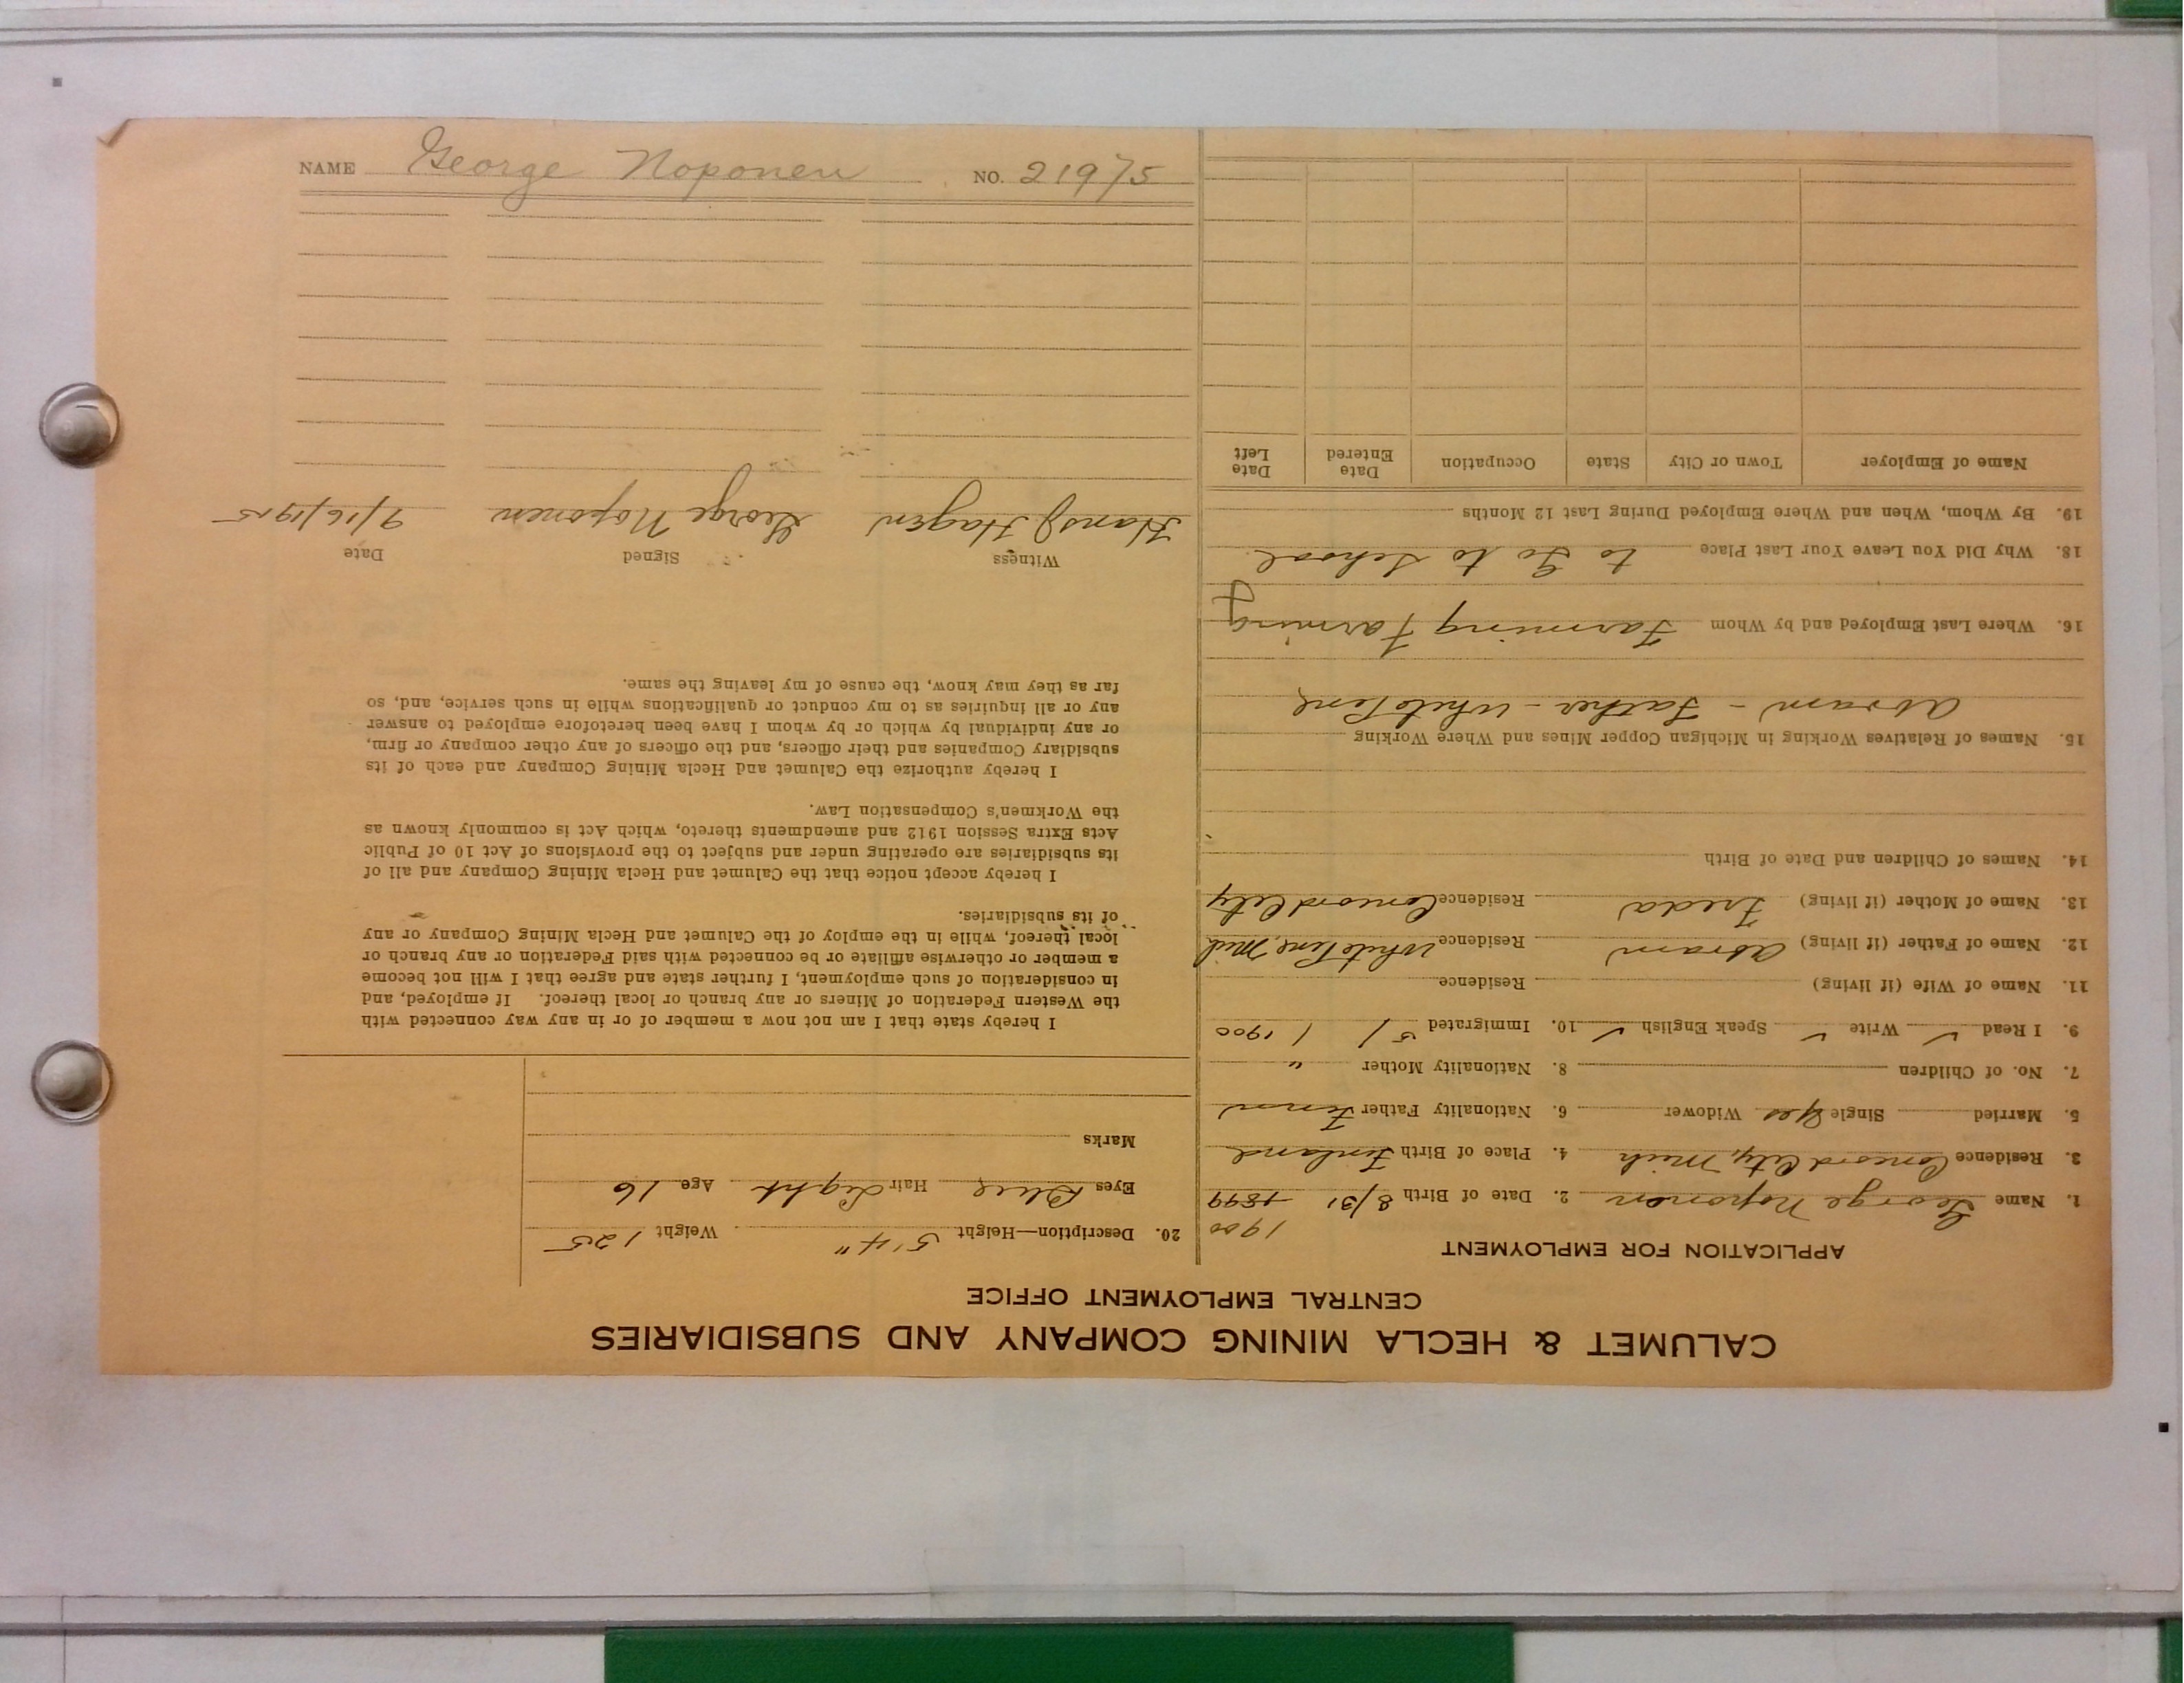 NAME George Noponen NO. 21975
CALUMET & HECLA MINING COMPANY AND SUBSIDIARIES
CENTRAL EMPLOYMENT OFFICE
APPLICATION FOR EMPLOYMENT
1900
1. Name George Noponen 2. Date of Birth 8/31 1899
3. Residence Concord City, Mich 4. Place of Birth Finland
5. Married Single Yes Widower 6. Nationality Father Finn
7. No. of Children 8. Nationality Mother "
9. I Read ✓ Write ✓ Speak English ✓ 10. Immigrated 5 / / 1900
11. Name of Wife (if living) Residence
12. Name of Father (if living) Abram Residence White Pine, Mich
13. Name of Mother (if living) Freda Residence Concord City
14. Names of Children and Date of Birth
15. Names of Relatives Working in Michigan Copper Mines and Where Working
Abram - Father - White Pine
16. Where Last Employed and by Whom Farming Farming
18. Why Did You Leave Your Last Place to Go to School
19. By Whom, When and Where Employed During Last 12 Months
Name of Employer Town or City State Occupation Date Entered Date Left
20. Description—Height 5'4" Weight 125
Eyes Blue Hair Light Age 16
Marks
I hereby state that I am not now a member of or in any way connected with
the Western Federation of Miners or any branch or local thereof. If employed, and
in consideration of such employment, I further state and agree that I will not become
a member or otherwise affiliate or be connected with said Federation or any branch or
local thereof, while in the employ of the Calumet and Hecla Mining Company or any
of its subsidiaries.
I hereby accept notice that the Calumet and Hecla Mining Company and all of
its subsidiaries are operating under and subject to the provisions of Act 10 of Public
Acts Extra Session 1912 and amendments thereto, which Act is commonly known as
the Workmen's Compensation Law.
I hereby authorize the Calumet and Hecla Mining Company and each of its
subsidiary Companies and their officers, and the officers of any other company or firm,
or any individual by which or by whom I have been heretofore employed to answer
any or all inquiries as to my conduct or qualifications while in such service, and, so
far as they may know, the cause of my leaving the same.
Witness Signed Date
Hans J Hagen George Noponen 9/16/1915